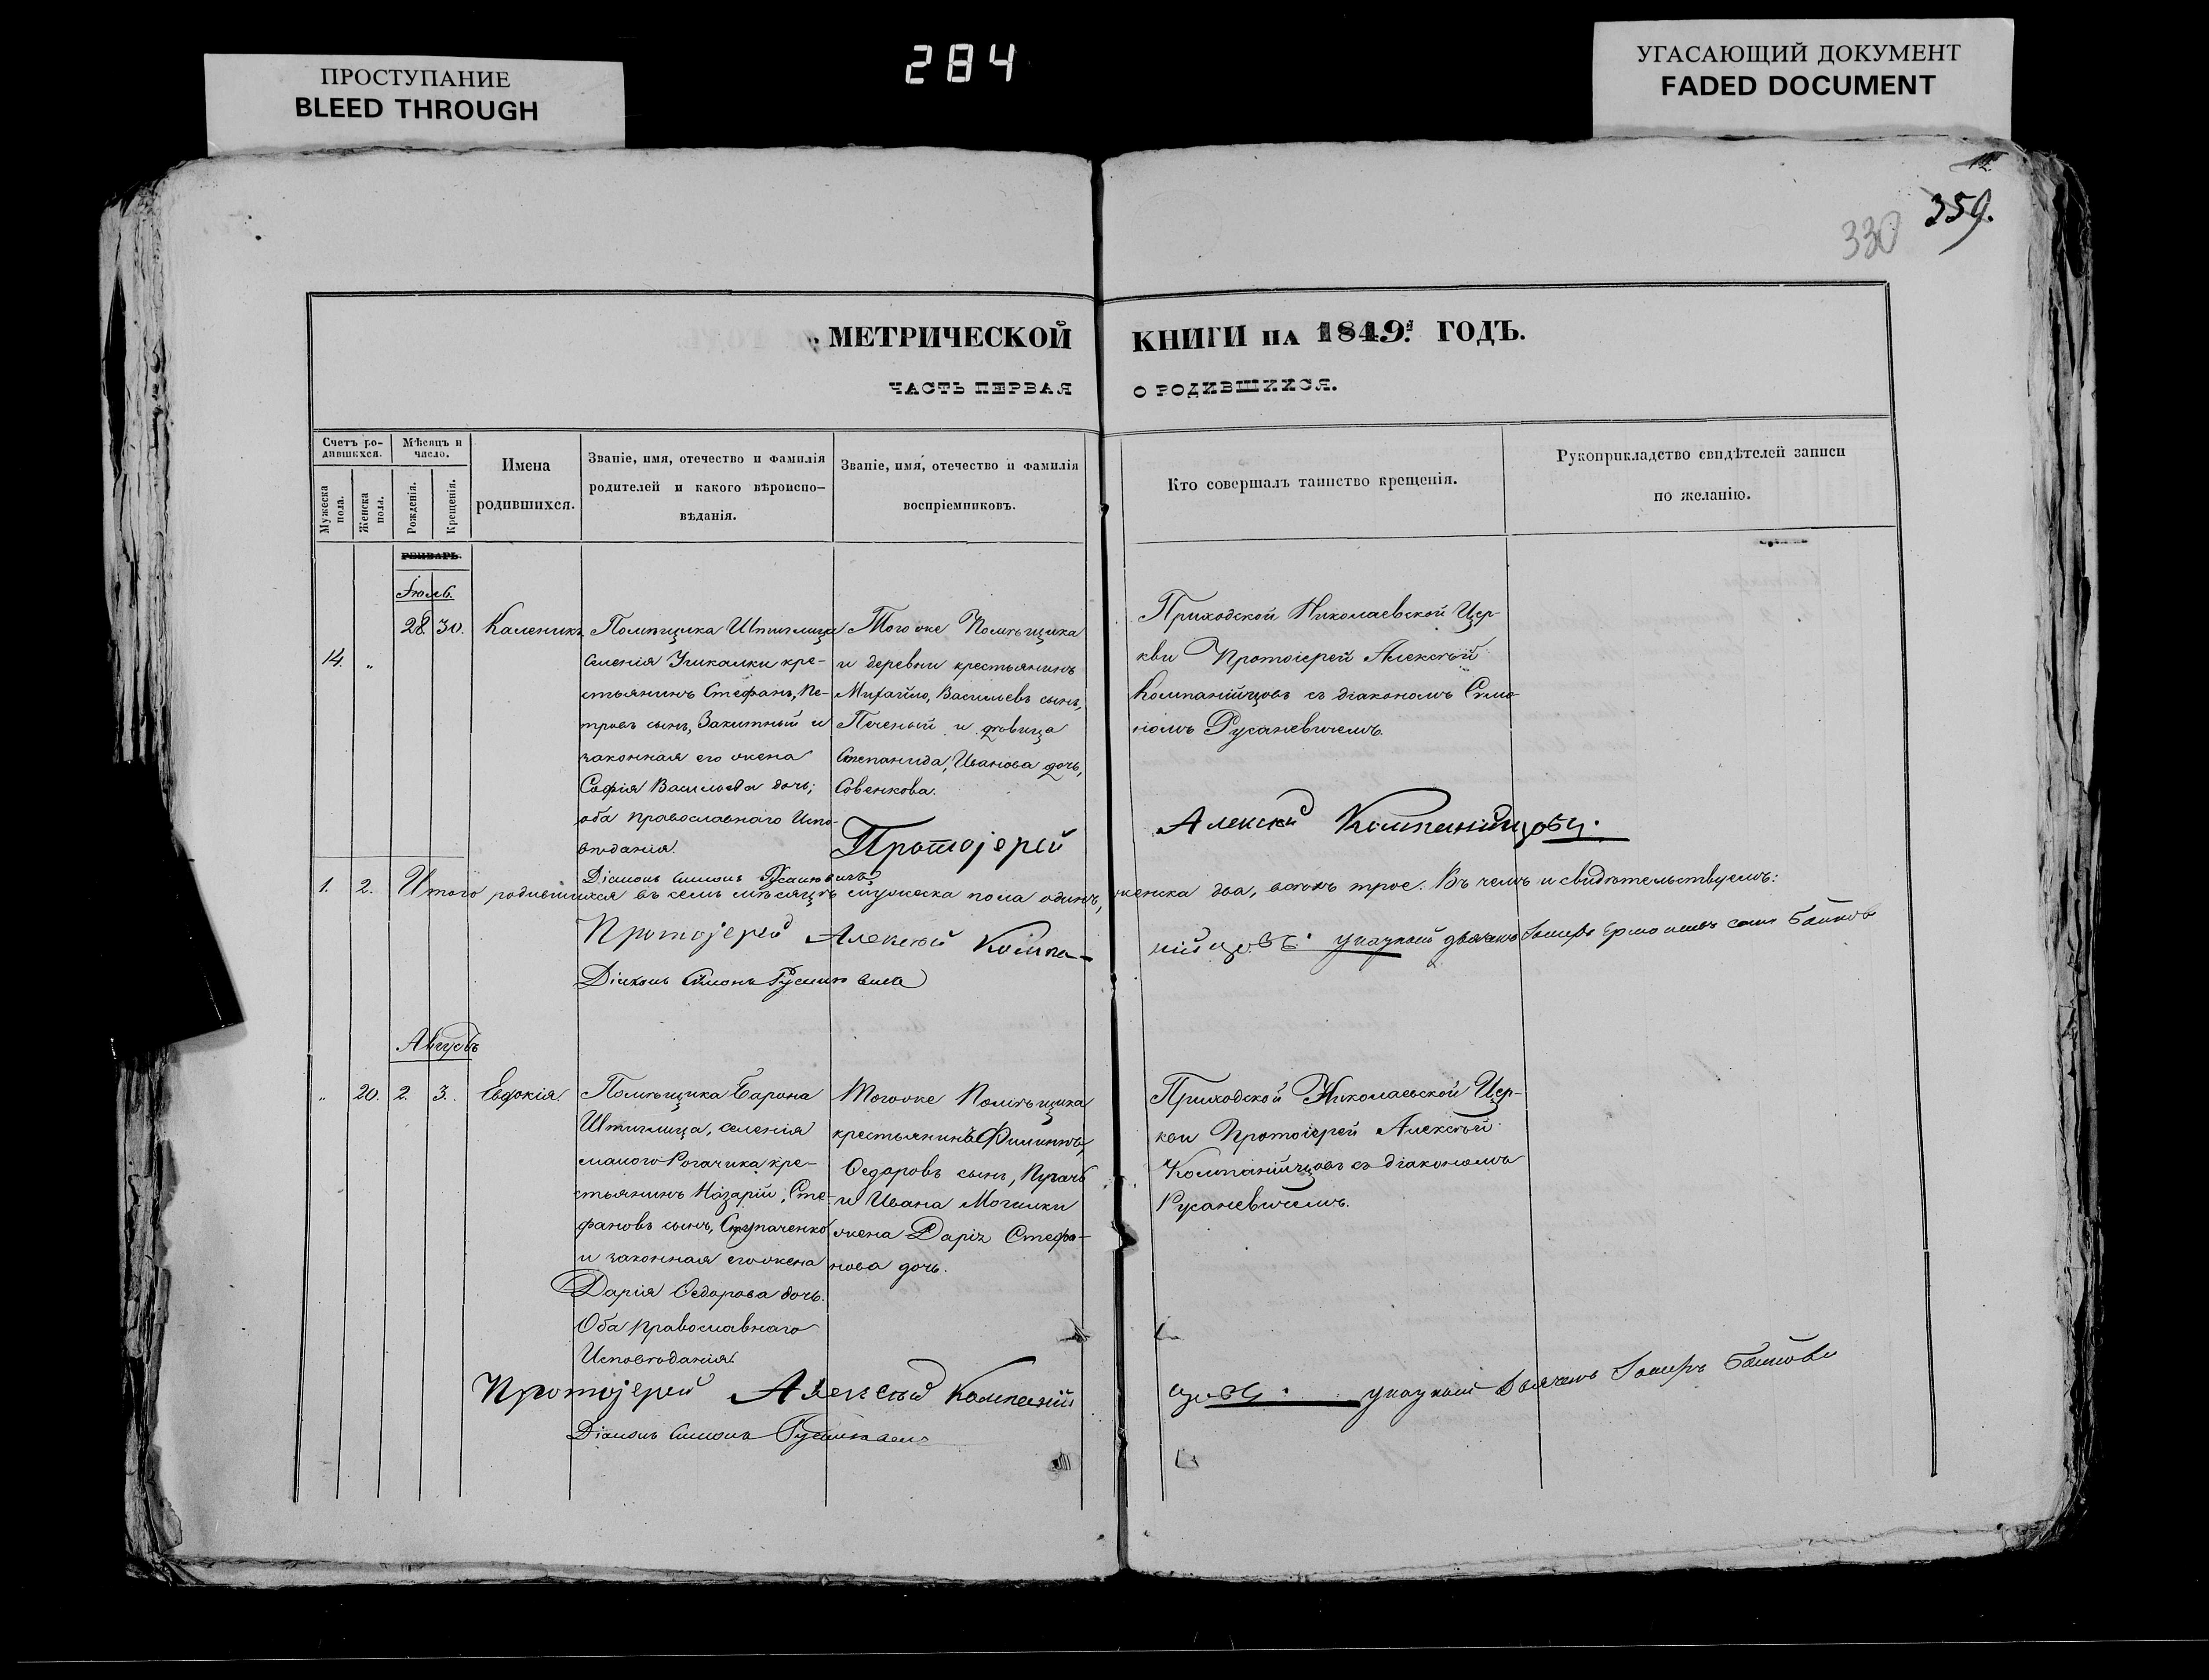 ПРОСТУПАНИЕ
BLEED THROUGH
284
УГАСАЮЩИЙ ДОКУМЕНТ
FADED DOCUMENT
359.
330
МЕТРИЧЕСКОЙ КНИГИ НА 1849й ГОДЪ.
ЧАСТЬ ПЕРВАЯ О РОДИВШИХСЯ.
Счетъ ро-
дившихся.
Мужеска
пола.
Женска
пола.
Мѣсяцъ и
число.
Рожденія.
Крещенія.
Имена
родившихся.
Званіе, имя, отечество и фамилія
родителей и какого вѣроиспо-
вѣданія.
Званіе, имя, отечество и фамилія
воспріемниковъ.
Кто совершалъ таинство крещенія.
Рукоприкладство свидѣтелей записи
по желанію.
ЯНВАРЬ.
Іюль.
14. „ 28. 30. Каленикъ
Помѣщика Штиглица
селенія Учкалки кре-
стьянинъ Стефанъ, Пе-
тровъ сынъ, Закитный и
законная его жена
Софія Васильева дочь;
оба православнаго Испо-
вѣданія.
Того же Помѣщика
и деревни крестьянинъ
Михайло, Васильевъ сынъ,
Печеный и дѣвица
Степанида, Иванова дочь,
Совенкова.
Приходской Николаевской Цер-
кви Протоіерей Алексѣй
Компанійцовъ съ діакономъ Симо-
номъ Русаневичемъ.
Протоіерей Алексѣй Компанійцовъ.
Діаконъ Симонъ Русаневичъ
1. 2. Итого родившихся въ семъ мѣсяцѣ мужеска пола одинъ, женска два, всѣхъ трое. Въ чемъ и свидѣтельствуемъ:
Протоіерей Алексѣй Компа-
нійцовъ. указный дьячекъ сынъ Байковъ
Діаконъ Симонъ Русаневичъ
Августъ
„ 20. 2. 3. Евдокія.
Помѣщика Барона
Штиглица, селенія
малого Рогачика кре-
стьянинъ Назарій, Сте-
фановъ сынъ, Ступаченко
и законная его жена
Дарія Ѳедорова дочь.
Оба православнаго
Исповѣданія.
Того же Помѣщика
крестьянинъ Филиппъ,
Ѳедоровъ сынъ, Пугачъ
и Ивана Могилки
жена Дарія Стефа-
нова дочь.
Приходской Николаевской Цер-
кви Протоіерей Алексѣй
Компанійцовъ съ діакономъ
Русаневичемъ.
Протоіерей Алексѣй Компаній
цовъ. указный Дьячекъ Байковъ
Діаконъ Симонъ Русаневичъ